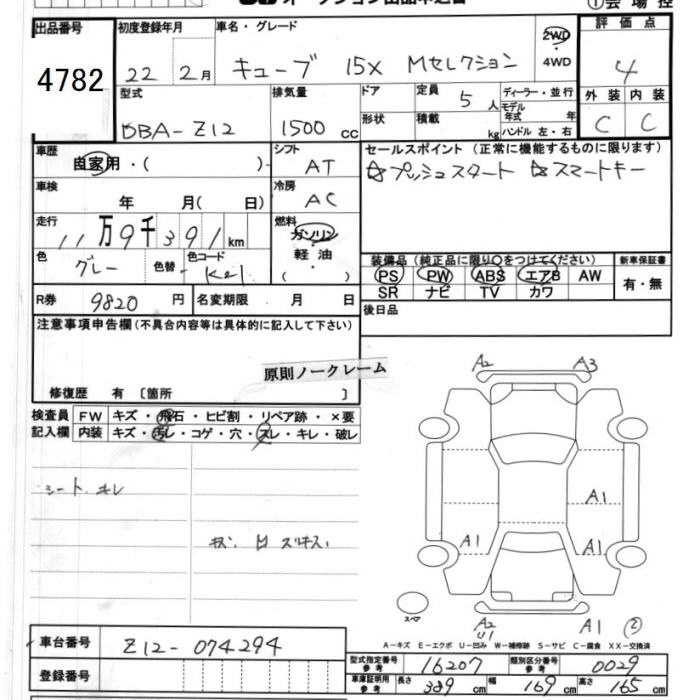 オークション出品申込書
①会場控
出品番号 初度登録年月 車名・グレード 評価点
4782 22 2月 キューブ 15X Mセレクション 2WD 4WD 4
型式 排気量 ドア 定員 5人 ディーラー・並行 外装 内装
DBA-Z12 1500cc 形状 積載 kg モデル年式 年 ハンドル 左・右 C C
車歴 自家用・( )
シフト AT
セールスポイント (正常に機能するものに限ります)
☆プッシュスタート ☆スマートキー
車検 年 月( 日)
冷房 AC
走行 11万9千391km
燃料 ガソリン・軽油・( )
色 グレー 色替 色コード K21
装備品 (純正品に限り○をつけてください) 新車保証書
PS PW ABS エアB AW 有・無
SR ナビ TV カワ
R券 9820円 名変期限 月 日
後日品
注意事項申告欄(不具合内容等は具体的に記入して下さい)
原則ノークレーム
修復歴 有 〔箇所 〕
検査員 FW キズ・飛石・ヒビ割・リペア跡・×要
記入欄 内装 キズ・汚レ・コゲ・穴・スレ・キレ・破レ
シート キレ
A2 A3
A1
A1 A1
スペア
A2 U1 A1
A-キズ E-エクボ U-凹み W-補修跡 S-サビ C-腐食 XX-交換済
車台番号 Z12-074294
型式指定番号 参考 16207 類別区分番号 参考 0029
登録番号
車庫証明用 参考 長さ 389cm 幅 169cm 高さ 165cm